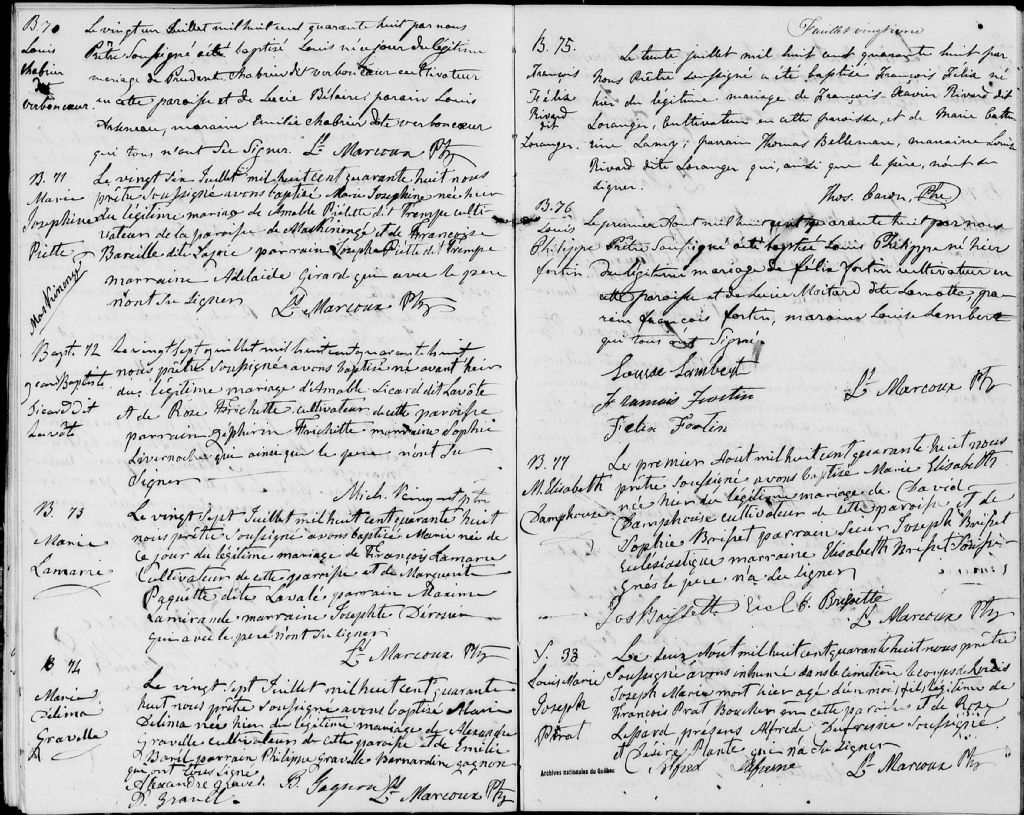 B. 70
Louis
Chabrier
Verboncoeur.
Le vingt un Juillet mil huit cent quarante huit par nous
Prêtre Soussigné a été baptisé Louis né ce jour du légitime
mariage de Prudent Chabrier dit Verboncoeur cultivateur
en cette paroisse et de Lucie Bélair: parain Louis
Arseneau, maraine Emilie Chabrier dite Verboncoeur
qui tous n'ont Su Signer. Ls. Marcoux Ptr
B. 71
Marie
Josephine
Piette
Maskinongé
Le vingt Six Juillet mil huit cent quarante huit nous
prêtre Soussigné avons baptisé Marie Josephine née hier
du légitime mariage de Amable Piette dit Trempe culti-
vateur de la paroisse de Maskinongé et de Françoise
Bareille dite Lajoie parrain Joseph Piette dit Trempe
marraine Adelaide Girard qui avec le pere
n'ont Su Signer
Ls. Marcoux Ptr
Bapt. 72
Jean Baptiste
Sicard dit
Lavôte
Le vingt Sept Juillet mil huit cent quarante huit
nous prêtre Soussigné avons baptisé né avant hier
du légitime mariage d'Amable Sicard dit Lavôte
et de Rose Frichette cultivateur de cette paroisse
parrain Zéphirin Frichette marraine Sophie
Livernoche qui ainsi que le pere n'ont Su
Signer
Mich. Ptr
B. 73
Marie
Lamarre
Le vingt Sept Juillet mil huit cent quarante huit
nous prêtre Soussigné avons baptisé Marie née de
ce jour du légitime mariage de François Lamarre
Cultivateur de cette paroisse et de Marguerite
Paquette dite Lavalé parrain Maxime
Lamirande marraine Josephte Dérosier
qui avec le pere n'ont Su Signer
Ls. Marcoux Ptr
B. 74
Marie
Délima
Gravelle
Le vingt Sept Juillet mil huit cent quarante
huit nous prêtre Soussigné avons baptisé Marie
Délima née hier du légitime mariage de Alexandre
Gravelle cultivateur de cette paroisse et de Emilie
Baril parrain Philippe Gravelle Bernardine gagnon
qui ont tous Signé
Alexandre Gravel. B. Gagnon
P. Gravel Ls. Marcoux Ptr
Feuillet vingtième
B. 75.
François
Félix
Rivard
dit
Loranger.
Le trente juillet mil huit cent quarante huit par
Nous Prêtre soussigné a été baptisé François Félix né
hier du légitime mariage de François-Xavier Rivard dit
Loranger, Cultivateur en cette paroisse, et de Marie Cathe
rine Lamy; parrain Thomas Bellemare, marraine Louise
Rivard dite Loranger qui, ainsi que le père, n'ont su
signer.
Thos. Caron, Ptre
B. 76
Louis
Philippe
Fortin
Le premier Aout mil huit cent quarante huit par nous
Prêtre Soussigné a été baptisé Louis Philippe né hier
du légitime mariage de Félix Fortin cultivateur en
cette paroisse et de Lucie Moitard dite Lamotte, pa-
rain François Fortin, maraine Louise Lambert
qui tous ont Signé
Louise Lambert
Framois Fortin
Félix Fortin
Ls. Marcoux Ptr
B. 77
M. Elisabeth
Damphouse
Le premier Aout mil huit cent quarante huit nous
prêtre Soussigné avons baptisé Marie Elisabeth
née hier du légitime mariage de David
Damphouse cultivateur de cette paroisse et de
Sophie Brisset parrain Sieur Joseph Brisset
Eclésiastique marraine Elisabeth Brisset Soussi-
gnés le pere n'a Su Signer
Eccl. E. Brissette
Ls. Marcoux Ptr
S. 33
Louis Marie
Joseph
Prat
Le deux Aout mil huit cent quarante huit nous prêtre
Soussigné avons inhumé dans le cimetière le corps de Louis
Joseph Marie mort hier agé d'un mois, fils légitime de
François Prat Boucher en cette paroisse et de Rose
Lepard presens Alfrede Dufresne Soussigné
et Désiré Plante qui n'a Su Signer
Alfred Dufresne Ls. Marcoux Ptr
Archives nationales du Québec